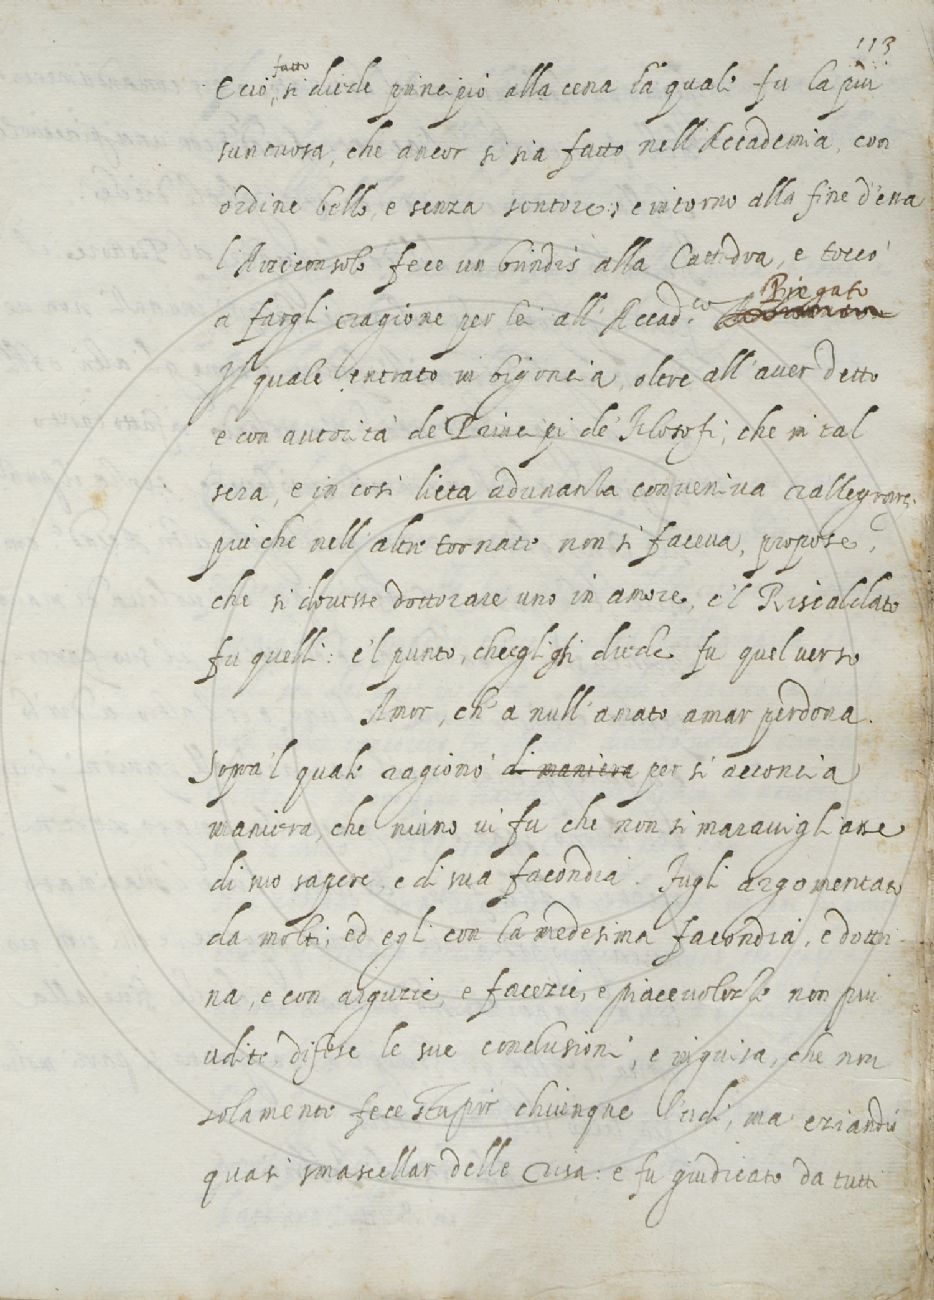 113
E ciò fatto, si diede principio alla cena la quale fu la più
suntuosa, che ancor si sia fatto nell'Accademia, con
ordine bello, e senza sentore; e intorno alla fine d'essa
l'Arciconsolo fece un brindis alla Cattedra, e toccò
a fargli ragione per lei all'Accad.co Piegato
Il quale entrato in bigoncia, oltre all'aver detto
e con autorità de' Principi de' Filosofi, che in tal
sera, e in così lieta adunanza conveniva rallegrarsi
più che nell'altre tornate non si faceva, propose,
che si dovesse dottorare uno in amore, e'l Riscaldato
fu quelli: e'l punto, che gli si diede fu quel verso
Amor, ch'a null'amato amar perdona.
Sopra'l quale ragionò di maniera per sì acconcia
maniera, che niuno vi fu che non si maravigliasse
di suo sapere, e di sua facondia. Fugli argomentato
da molti, ed egli con la medesima facondia, e dottri-
na, e con arguzie, e facezie, e piacevolezze non più
udite difese le sue conclusioni, e in guisa, che non
solamente fece stupir chiunque l'udì, ma eziandio
quasi smascellar delle risa: e fu giudicato da tutti